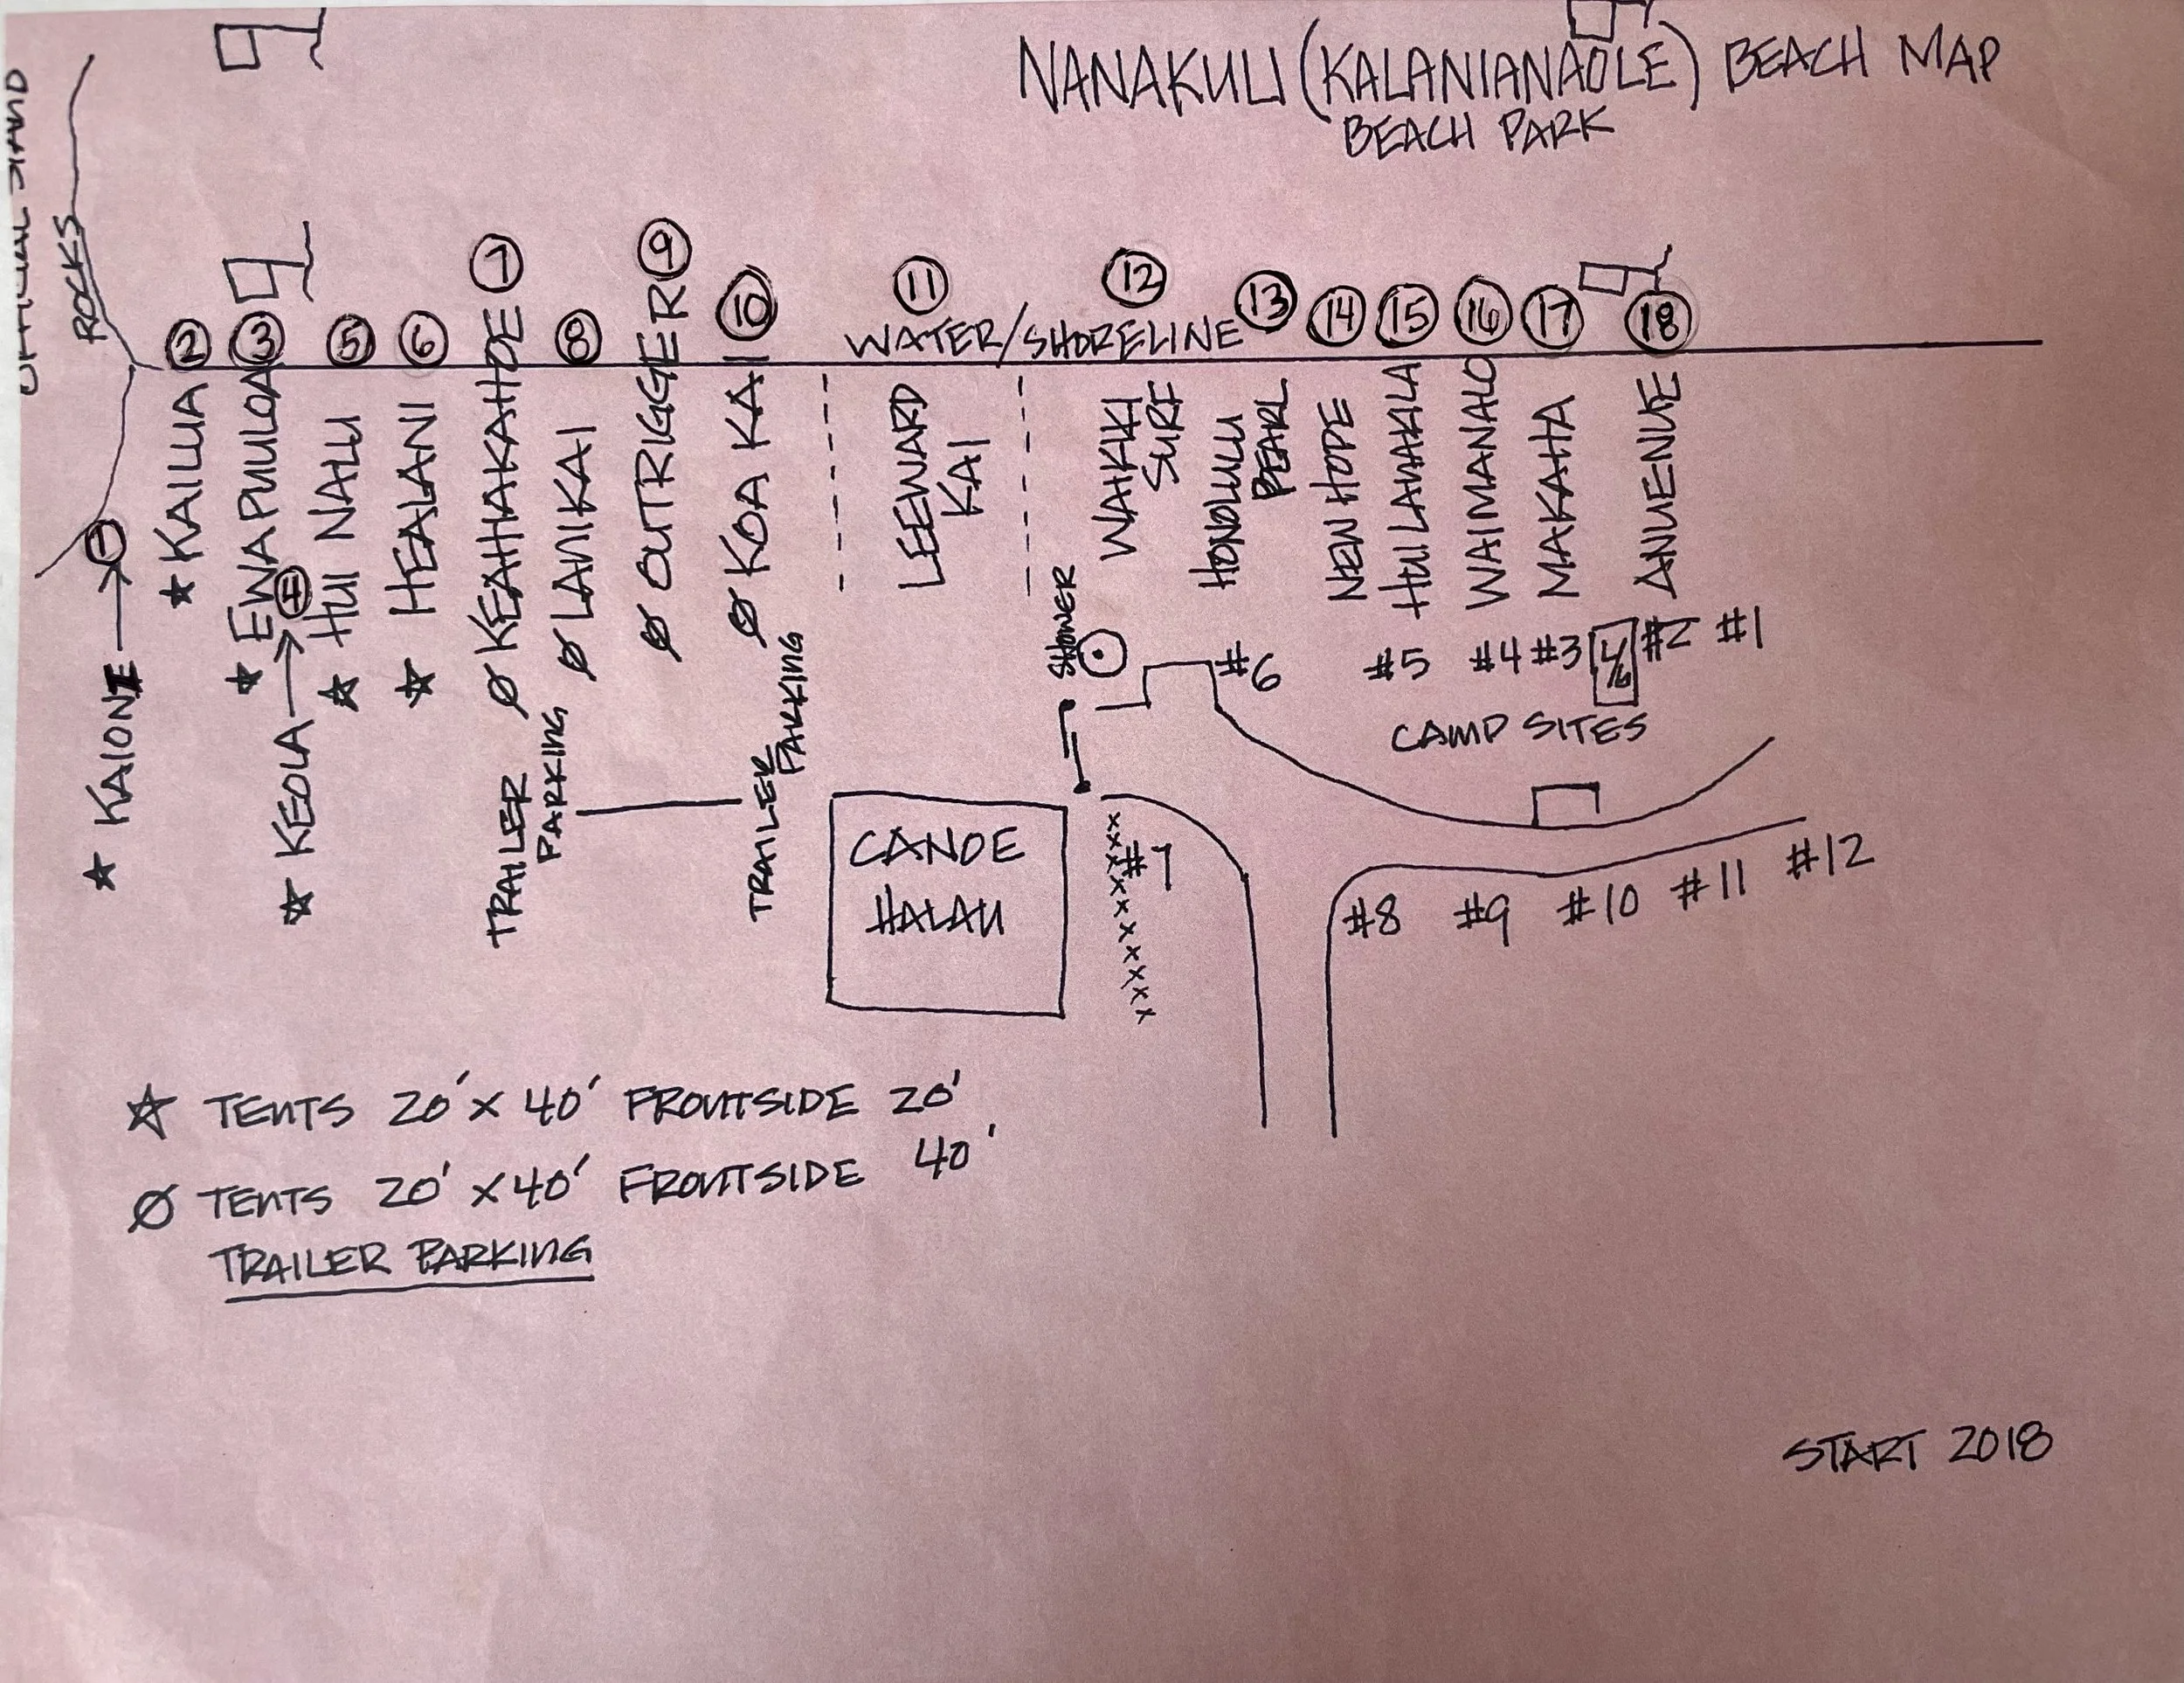 NANAKULI (KALANIANAOLE) BEACH MAP
BEACH PARK
ROCKS
WATER/SHORELINE
1
★ KAIONE
2
★ KAILUA
3
★ EWA PUULOA
4
★ KEOLA
5
★ HUI NALU
6
★ HEALANI
7
Ø KEAHIAKAHOE
8
Ø LANIKAI
9
Ø OUTRIGGER
10
Ø KOA KAI
TRAILER
PARKING
TRAILER
PARKING
11
LEEWARD
KAI
12
WAIKIKI
SURF
13
HONOLULU
PEARL
14
NEW HOPE
15
HUI LANAKILA
16
WAIMANALO
17
MAKAHA
18
ANUENUE
SHOWER
#6 #5 #4 #3 #2 #1
CAMP SITES
CANOE
HALAU
#7
xxxxxxxxxxx
#8 #9 #10 #11 #12
☆ TENTS 20' X 40' FRONTSIDE 20'
Ø TENTS 20' X 40' FRONTSIDE 40'
TRAILER PARKING
START 2018